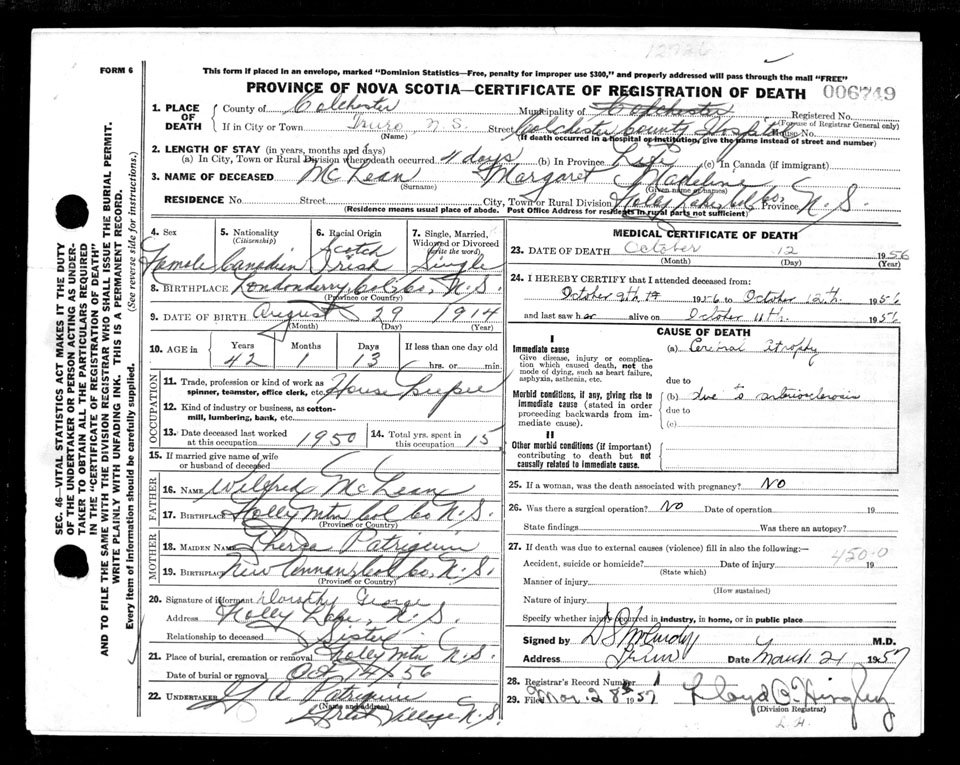 12726
FORM 6
This form if placed in an envelope, marked "Dominion Statistics—Free, penalty for improper use $300," and properly addressed will pass through the mail "FREE"
PROVINCE OF NOVA SCOTIA—CERTIFICATE OF REGISTRATION OF DEATH 006749
SEC. 46—VITAL STATISTICS ACT MAKES IT THE DUTY
OF THE UNDERTAKER OR PERSON ACTING AS UNDER-
TAKER TO OBTAIN ALL THE PARTICULARS REQUIRED
IN THE "CERTIFICATE OF REGISTRATION OF DEATH"
AND TO FILE THE SAME WITH THE DIVISION REGISTRAR WHO SHALL ISSUE THE BURIAL PERMIT.
WRITE PLAINLY WITH UNFADING INK. THIS IS A PERMANENT RECORD.
Every item of information should be carefully supplied. (See reverse side for instructions.)
1. PLACE OF DEATH County of Colchester Municipality of Colchester Registered No.
(For use of Registrar General only)
If in City or Town Truro N.S. Street Colchester County Hospital House No.
(Name) (If death occurred in a hospital or institution, give the name instead of street and number)
2. LENGTH OF STAY (in years, months and days)
(a) In City, Town or Rural Division where death occurred 4 days (b) In Province Life (c) In Canada (if immigrant)
3. NAME OF DECEASED McLean Margaret Madeline
(Surname) (Given name or names)
RESIDENCE No. Street City, Town or Rural Division Folly Lake, Col. Co., Province N.S.
(Residence means usual place of abode. Post Office Address for residents in rural parts not sufficient)
4. Sex 5. Nationality (Citizenship) 6. Racial Origin 7. Single, Married, Widowed or Divorced (write the word)
Female Canadian Scotch Irish Single
8. BIRTHPLACE Londonderry Col. Co., N.S.
(Province or Country)
9. DATE OF BIRTH August 29 1914
(Month) (Day) (Year)
10. AGE in Years Months Days If less than one day old
42 1 13 hrs. or min.
OCCUPATION
11. Trade, profession or kind of work as spinner, teamster, office clerk, etc. House Keeper
12. Kind of industry or business, as cotton-mill, lumbering, bank, etc.
13. Date deceased last worked at this occupation 1950 14. Total yrs. spent in this occupation 15
15. If married give name of wife or husband of deceased
FATHER
16. NAME Wilfred McLean
17. Birthplace Folly Mtn Col Co N.S.
(Province or Country)
MOTHER
18. MAIDEN NAME Theresa Patriquin
19. BIRTHPLACE New Annan, Col Co, N.S.
(Province or Country)
20. Signature of informant Dorothy George
Address Folly Lake, N.S.
Relationship to deceased Sister
21. Place of burial, cremation or removal Folly Mtn N.S.
Date of burial or removal Oct 14/56
22. UNDERTAKER G A Patriquin
(Name and address)
Great Village N.S.
MEDICAL CERTIFICATE OF DEATH
23. DATE OF DEATH October 12 1956
(Month) (Day) (Year)
24. I HEREBY CERTIFY that I attended deceased from:
October 9th, 1956 to October 12th. 1956
and last saw her alive on October 11th. 1956
CAUSE OF DEATH
I
Immediate cause (a) Cerebral Atrophy
Give disease, injury or complication which caused death, not the mode of dying, such as heart failure, asphyxia, asthenia, etc.
due to
Morbid conditions, if any, giving rise to immediate cause (stated in order proceeding backwards from immediate cause).
(b) due to arteriosclerosis
due to
(c)
II
Other morbid conditions (if important) contributing to death but not causally related to immediate cause.
25. If a woman, was the death associated with pregnancy? No
26. Was there a surgical operation? No Date of operation 19
State findings Was there an autopsy?
27. If death was due to external causes (violence) fill in also the following:—
450.0
Accident, suicide or homicide? Date of injury 19
(State which)
Manner of injury
(How sustained)
Nature of injury
Specify whether injury occurred in industry, in home, or in public place
Signed by D S McCurdy M.D.
Address Truro Date March 21 1957
28. Registrar's Record Number 1
29. Filed Mar. 28th 1957 Lloyd C. Hingley
(Division Registrar)
L.H.